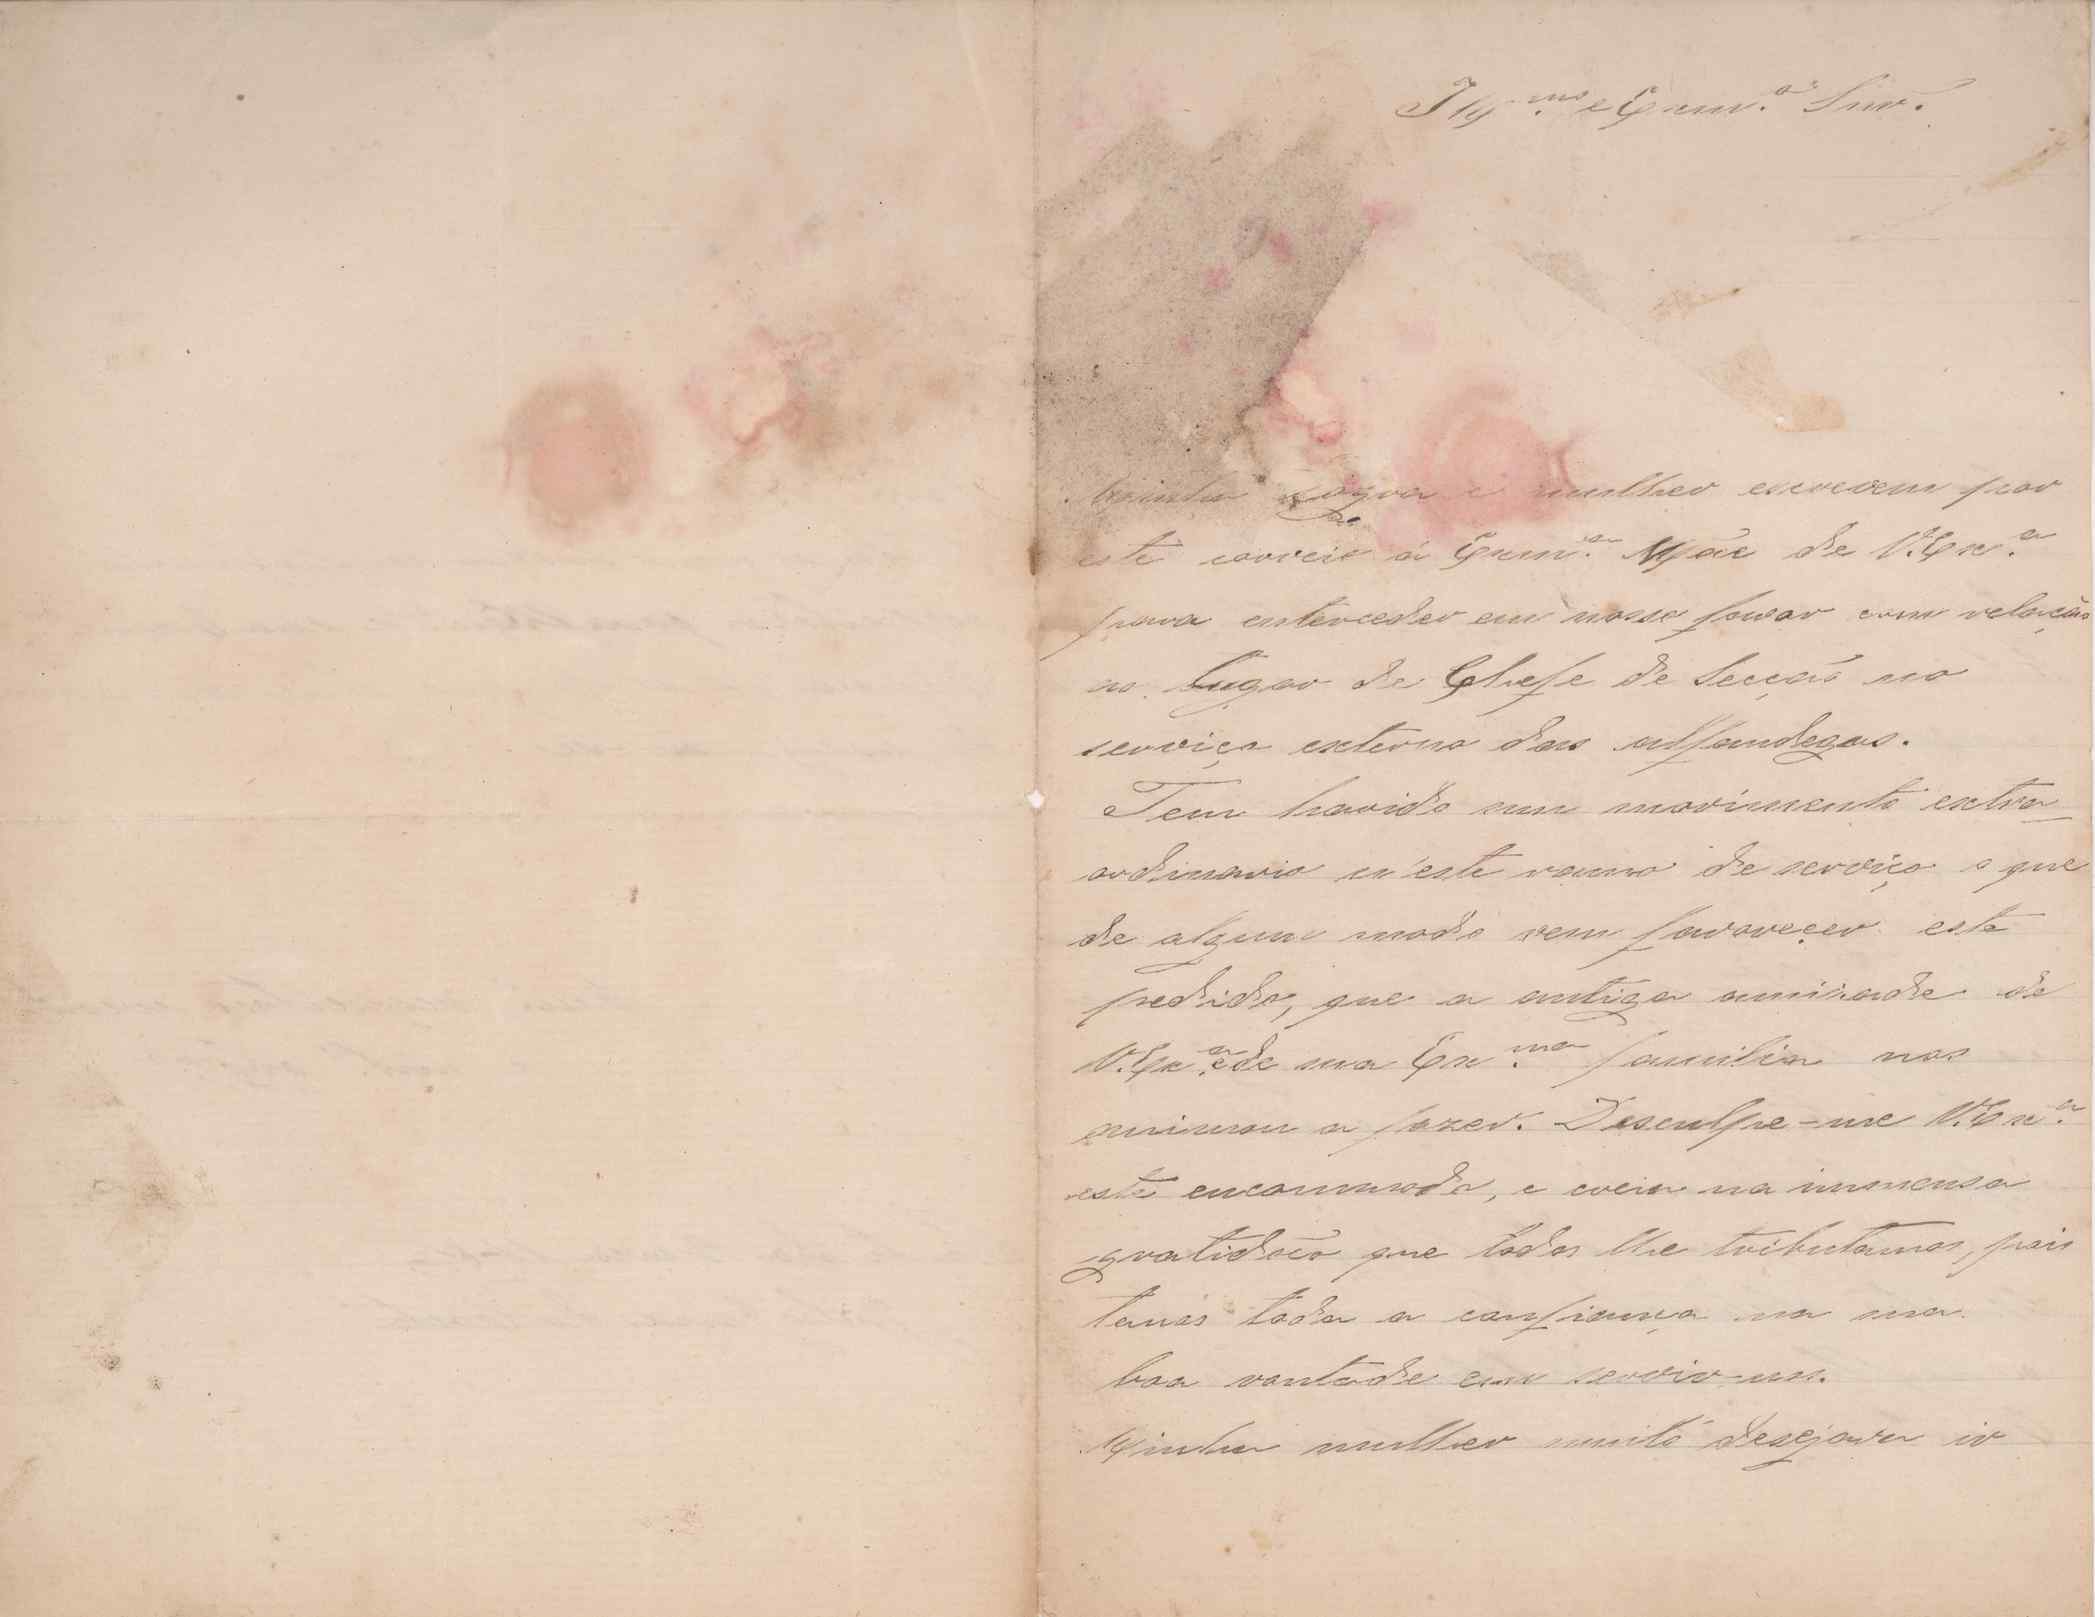 Ill.mo e Exm.o Snr.
Minha sogra e mulher escrevem por
este correio á Exm.a Mãe de V. Ex.a
para interceder em nosso favor com relação
ao lugar de Chefe de Secção no
serviço externo das alfandegas.
Tem havido um movimento extra-
ordinario n'este ramo de serviço o que
de algum modo vem favoreçer este
pedido, que a antiga amisade de
V. Ex.a e de sua Ex.ma familia nos
animou a fazer. Desculpe-me V. Ex.a
este encommodo, e creia na immensa
gratidão que todos lhe tributamos, pois
temos toda a confiança na sua
boa vontade em servir-nos.
Minha mulher muito desejava ir